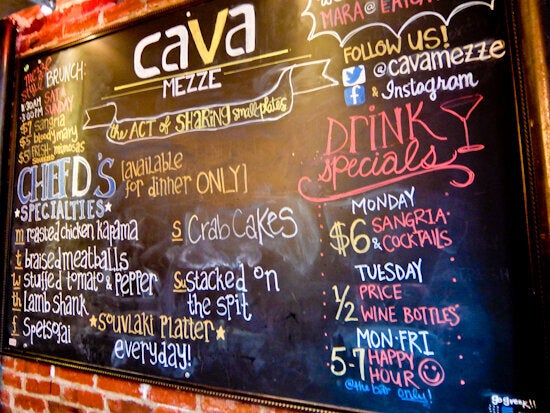 cava
MEZZE
the ACT of SHARING smallplates
MARA@
FOLLOW US!
@cavamezze
& Instagram
BRUNCH:
SUNDAY
$7 sangria
$5 bloody mary
$5 FRESH mimosas
CHEF D'S
SPECIALTIES
[available
for dinner ONLY]
m roasted chicken kapama
t braised meatballs
w stuffed tomato & pepper
th Lamb shank
f Spetsofai
S CRab CaKes
Su Stacked on
the spit
SOUVLAKI PLATTER
everyday!
DRINK
specials
MONDAY
$6 SANGRIA
& COCKTAILS
TUESDAY
1/2 PRICE
WINE BOTTLES
MON-FRI
5-7 HAPPY
HOUR
@the bar only!
go greek!!